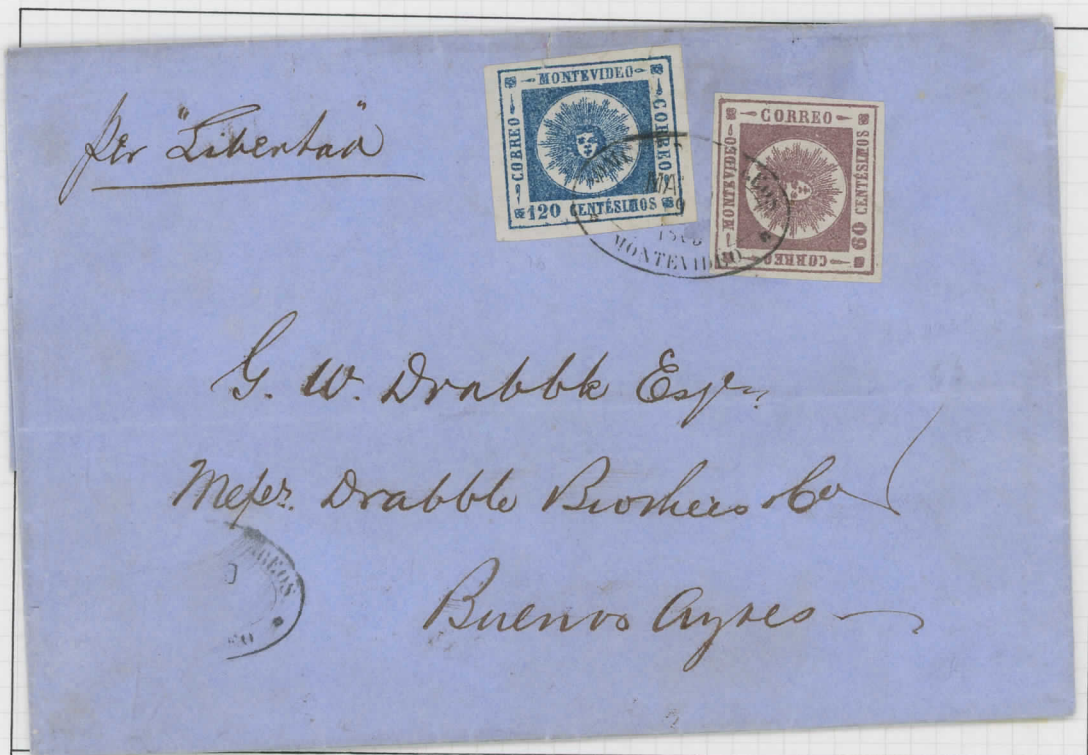 per "Libertad"
MONTEVIDEO
CORREO
CORREO
120 CENTÉSIMOS
CORREO
MONTEVIDEO
60 CENTÉSIMOS
CORREO
MONTEVIDEO
G. W. Drabble Esqr.
Messrs. Drabble Brothers & Co
Buenos Ayres